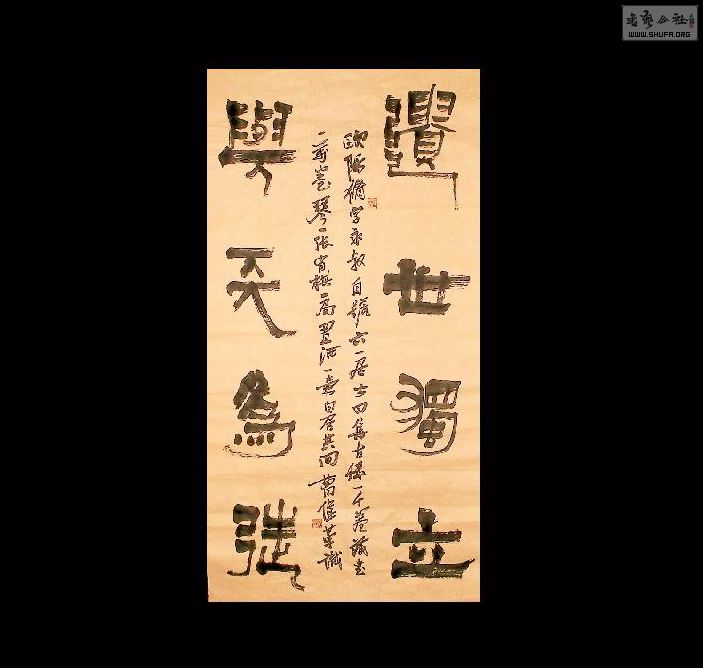 遺世獨立
歐陽脩字永叔自號六一居士曰集古錄一千卷藏書
一萬卷琴一張有棋一局置酒一壺自居其間
與天為徒
書藝公社
WWW.SHUFA.ORG